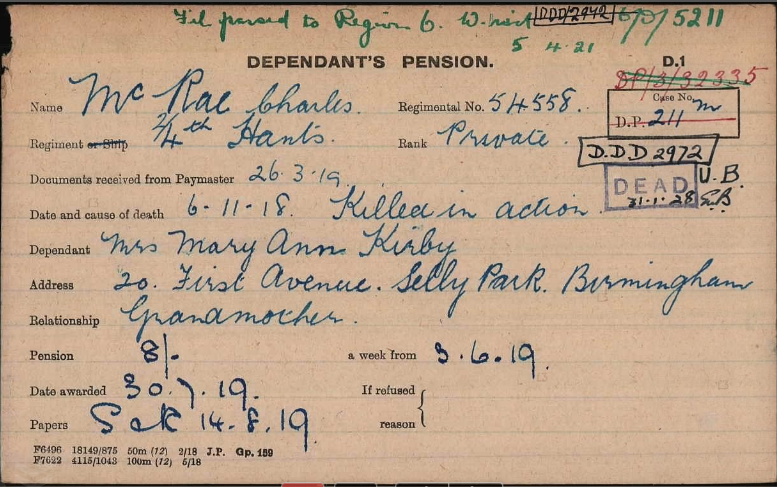 File passed to Region 6. W. Div DDD/2942 6/D/5211
5 4.21
DEPENDANT'S PENSION. D.1
DP/3/32335
Name Mc Rae Charles. Regimental No. 54558. Case No. M
D.P. 211
Regiment or Ship 2/4th Hants. Rank Private.
D.D.D 2972
Documents received from Paymaster 26.3.19.
DEAD U.B.
31.1.28 E.B.
Date and cause of death 6-11-18. Killed in action.
Dependant Mrs Mary Ann Kirby
Address 20. First Avenue. Selly Park. Birmingham
Relationship Grandmother.
Pension 8/- a week from 3.6.19.
Date awarded 30.7.19. If refused
Papers S & R 14.8.19 reason
F6496 18149/875 50m (12) 2/18 J.P. Gp. 159
F7622 4115/1043 100m (12) 5/18